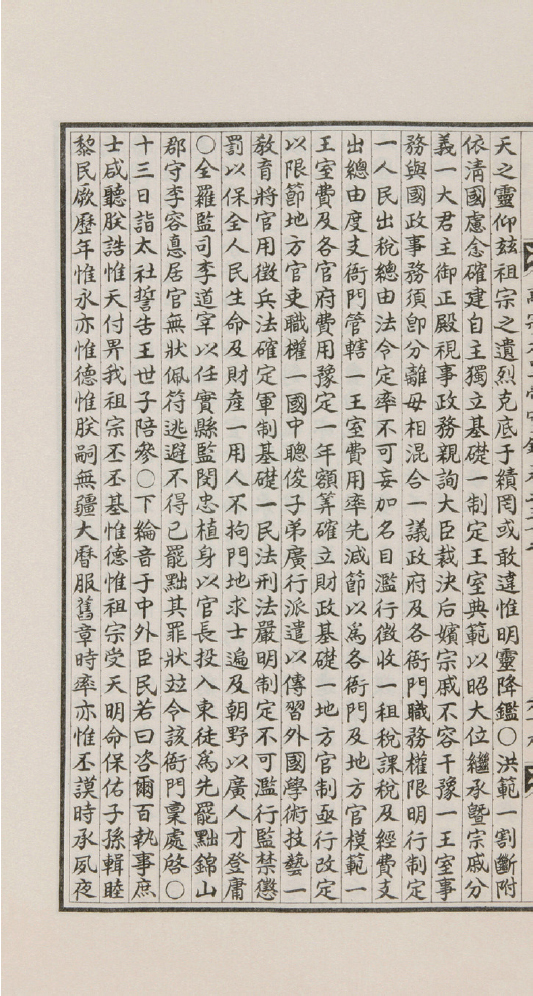 天之靈仰玆祖宗之遺烈克底于績罔或敢違惟明靈降鑑○洪範一割斷附
依淸國慮念確建自主獨立基礎一制定王室典範以昭大位繼承曁宗戚分
義一大君主御正殿視事政務親詢大臣裁決后嬪宗戚不容干豫一王室事
務與國政事務須卽分離毋相混合一議政府及各衙門職務權限明行制定
一人民出稅總由法令定率不可妄加名目濫行徵收一租稅課稅及經費支
出總由度支衙門管轄一王室費用率先減節以爲各衙門及地方官模範一
王室費及各官府費用豫定一年額筭確立財政基礎一地方官制亟行改定
以限節地方官吏職權一國中聰俊子弟廣行派遣以傳習外國學術技藝一
敎育將官用徵兵法確定軍制基礎一民法刑法嚴明制定不可濫行監禁懲
罰以保全人民生命及財產一用人不拘門地求士遍及朝野以廣人才登庸
○全羅監司李道宰以任實縣監閔忠植身以官長投入東徒爲先罷黜錦山
郡守李容悳居官無狀佩符逃避不得已罷黜其罪狀竝令該衙門稟處啓○
十三日詣太社誓告王世子陪參○下綸音于中外臣民若曰咨爾百執事庶
士咸聽朕誥惟天付畀我祖宗丕丕基惟德惟祖宗受天明命保佑子孫輯睦
黎民厥歷年惟永亦惟德惟朕嗣無疆大曆服舊章時率亦惟丕謨時承夙夜